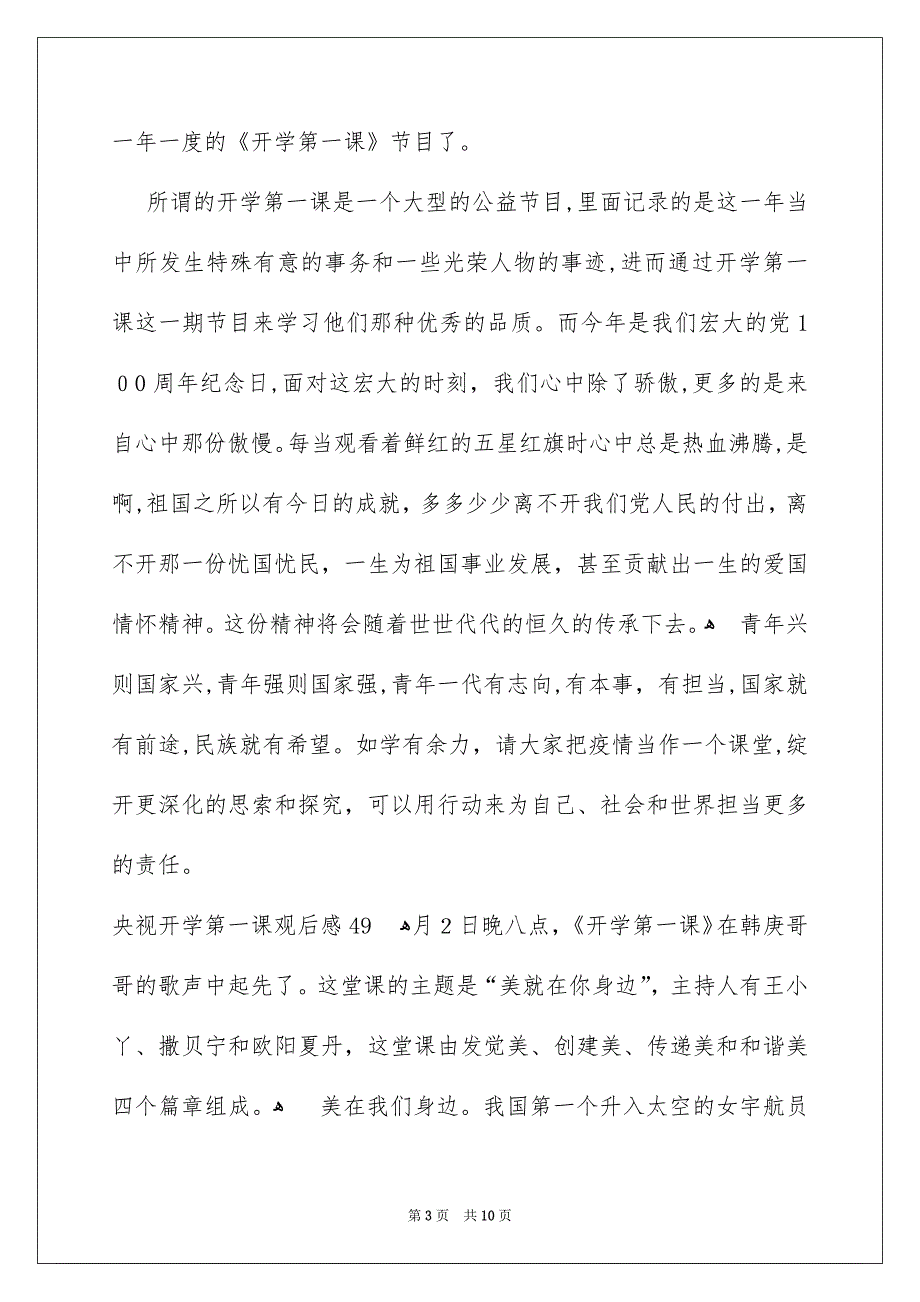 一年一度的《开学第一课》节目了。
所谓的开学第一课是一个大型的公益节目,里面记录的是这一年当
中所发生特殊有意的事务和一些光荣人物的事迹,进而通过开学第一
课这一期节目来学习他们那种优秀的品质。而今年是我们宏大的党1
00周年纪念日,面对这宏大的时刻，我们心中除了骄傲,更多的是来
自心中那份傲慢。每当观看着鲜红的五星红旗时心中总是热血沸腾,是
啊,祖国之所以有今日的成就，多多少少离不开我们党人民的付出，离
不开那一份忧国忧民，一生为祖国事业发展，甚至贡献出一生的爱国
情怀精神。这份精神将会随着世世代代的恒久的传承下去。ﻫ 青年兴
则国家兴,青年强则国家强,青年一代有志向,有本事，有担当,国家就
有前途,民族就有希望。如学有余力，请大家把疫情当作一个课堂,绽
开更深化的思索和探究，可以用行动来为自己、社会和世界担当更多
的责任。
央视开学第一课观后感49 ﻫ月2日晚八点，《开学第一课》在韩庚哥
哥的歌声中起先了。这堂课的主题是“美就在你身边”，主持人有王小
丫、撒贝宁和欧阳夏丹，这堂课由发觉美、创建美、传递美和和谐美
四个篇章组成。ﻫ 美在我们身边。我国第一个升入太空的女宇航员
第3页 共10页